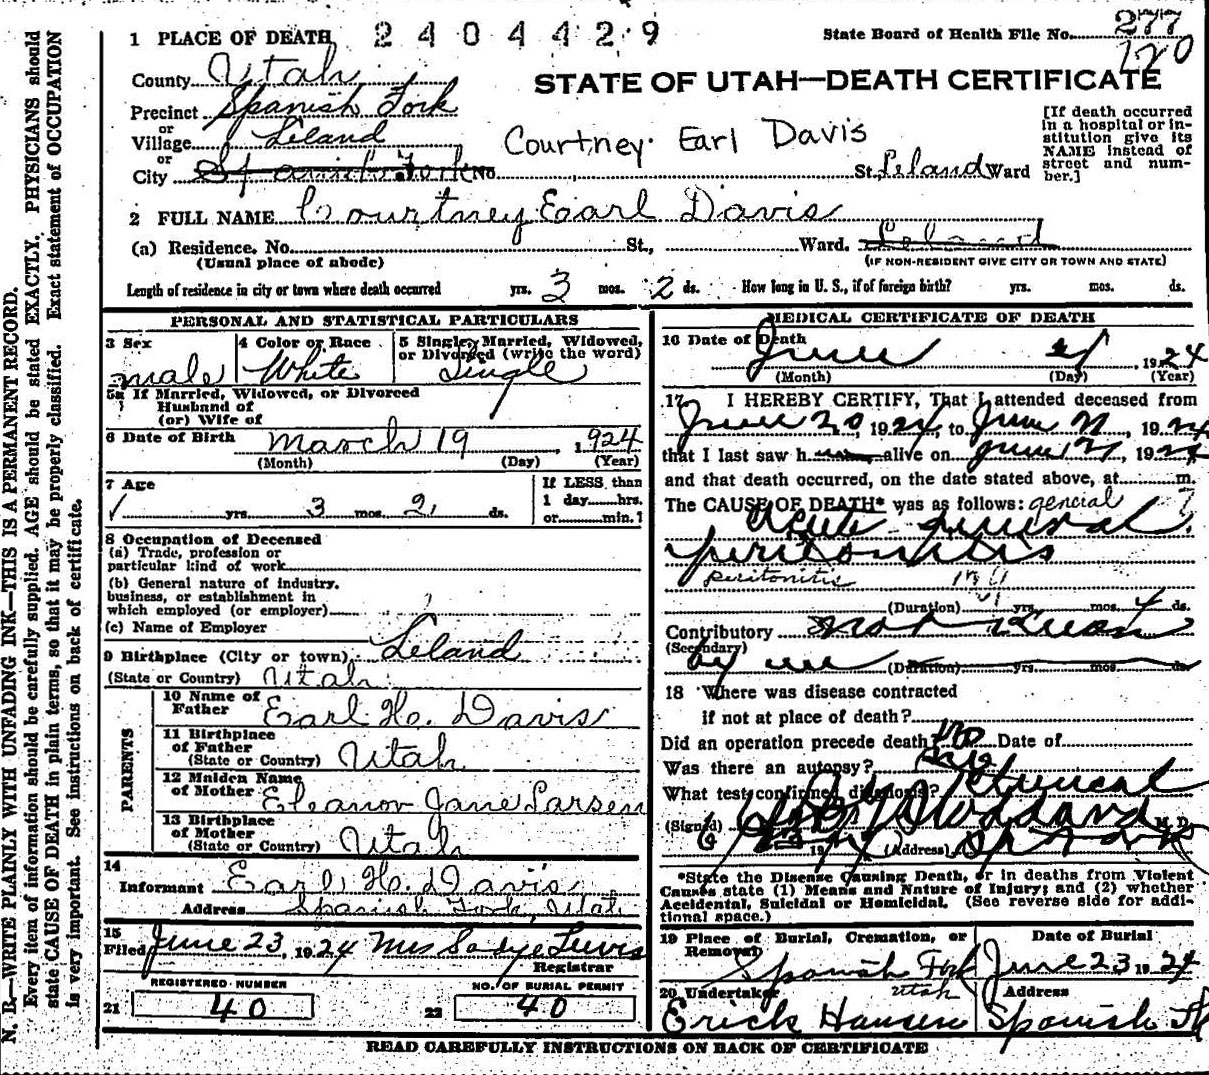 1 PLACE OF DEATH 2404429 State Board of Health File No. 277
120
County Utah
STATE OF UTAH—DEATH CERTIFICATE
Precinct Spanish Fork
or
Village Leland
or
City Spanish Fork No. St. Leland Ward
Courtney Earl Davis
[If death occurred
in a hospital or in-
stitution give its
NAME instead of
street and num-
ber.]
2 FULL NAME Courtney Earl Davis
(a) Residence. No. St., Ward. Leland
(Usual place of abode) (IF NON-RESIDENT GIVE CITY OR TOWN AND STATE)
Length of residence in city or town where death occurred yrs. 3 mos. 2 ds. How long in U. S., if of foreign birth? yrs. mos. ds.
PERSONAL AND STATISTICAL PARTICULARS
3 Sex 4 Color or Race 5 Single, Married, Widowed,
or Divorced (write the word)
male White Single
5a If Married, Widowed, or Divorced
Husband of
(or) Wife of
6 Date of Birth March 19 1924
(Month) (Day) (Year)
7 Age If LESS than
1 day hrs.
yrs. 3 mos. 2 ds. or min.
8 Occupation of Deceased
(a) Trade, profession or
particular kind of work
(b) General nature of industry,
business, or establishment in
which employed (or employer)
(c) Name of Employer
9 Birthplace (City or town) Leland
(State or Country) Utah
PARENTS
10 Name of
Father Earl H. Davis
11 Birthplace
of Father
(State or Country) Utah
12 Maiden Name
of Mother Eleanor Jane Larsen
13 Birthplace
of Mother
(State or Country) Utah
14
Informant Earl H. Davis
Address Spanish Fork, Utah
15
Filed June 23, 1924 Mrs Sadye Lewis
Registrar
REGISTERED NUMBER NO. OF BURIAL PERMIT
21 40 22 40
MEDICAL CERTIFICATE OF DEATH
16 Date of Death
June 21, 1924
(Month) (Day) (Year)
17 I HEREBY CERTIFY, That I attended deceased from
June 20, 1924, to June 21, 1924
that I last saw h alive on June 21, 1924
and that death occurred, on the date stated above, at m.
The CAUSE OF DEATH* was as follows: general
Acute general
peritonitis
peritonitis
(Duration) yrs. mos. 4 ds.
Contributory not known
(Secondary)
by me (Duration) yrs. mos. ds.
18 Where was disease contracted
if not at place of death?
Did an operation precede death? no Date of
Was there an autopsy? no
What test confirmed diagnosis? Clinical
(Signed) Stoddard M. D.
6 23 1924 (Address) Sp Fork
*State the Disease Causing Death, or in deaths from Violent
Causes state (1) Means and Nature of Injury; and (2) whether
Accidental, Suicidal or Homicidal. (See reverse side for addi-
tional space.)
19 Place of Burial, Cremation, or
Removal Date of Burial
Spanish Fork June 23 1924
Utah
20 Undertaker Address
Erick Hansen Spanish Fk
READ CAREFULLY INSTRUCTIONS ON BACK OF CERTIFICATE
N. B.—WRITE PLAINLY WITH UNFADING INK—THIS IS A PERMANENT RECORD.
Every item of information should be carefully supplied. AGE should be stated EXACTLY. PHYSICIANS should
state CAUSE OF DEATH in plain terms, so that it may be properly classified. Exact statement of OCCUPATION
is very important. See instructions on back of certificate.